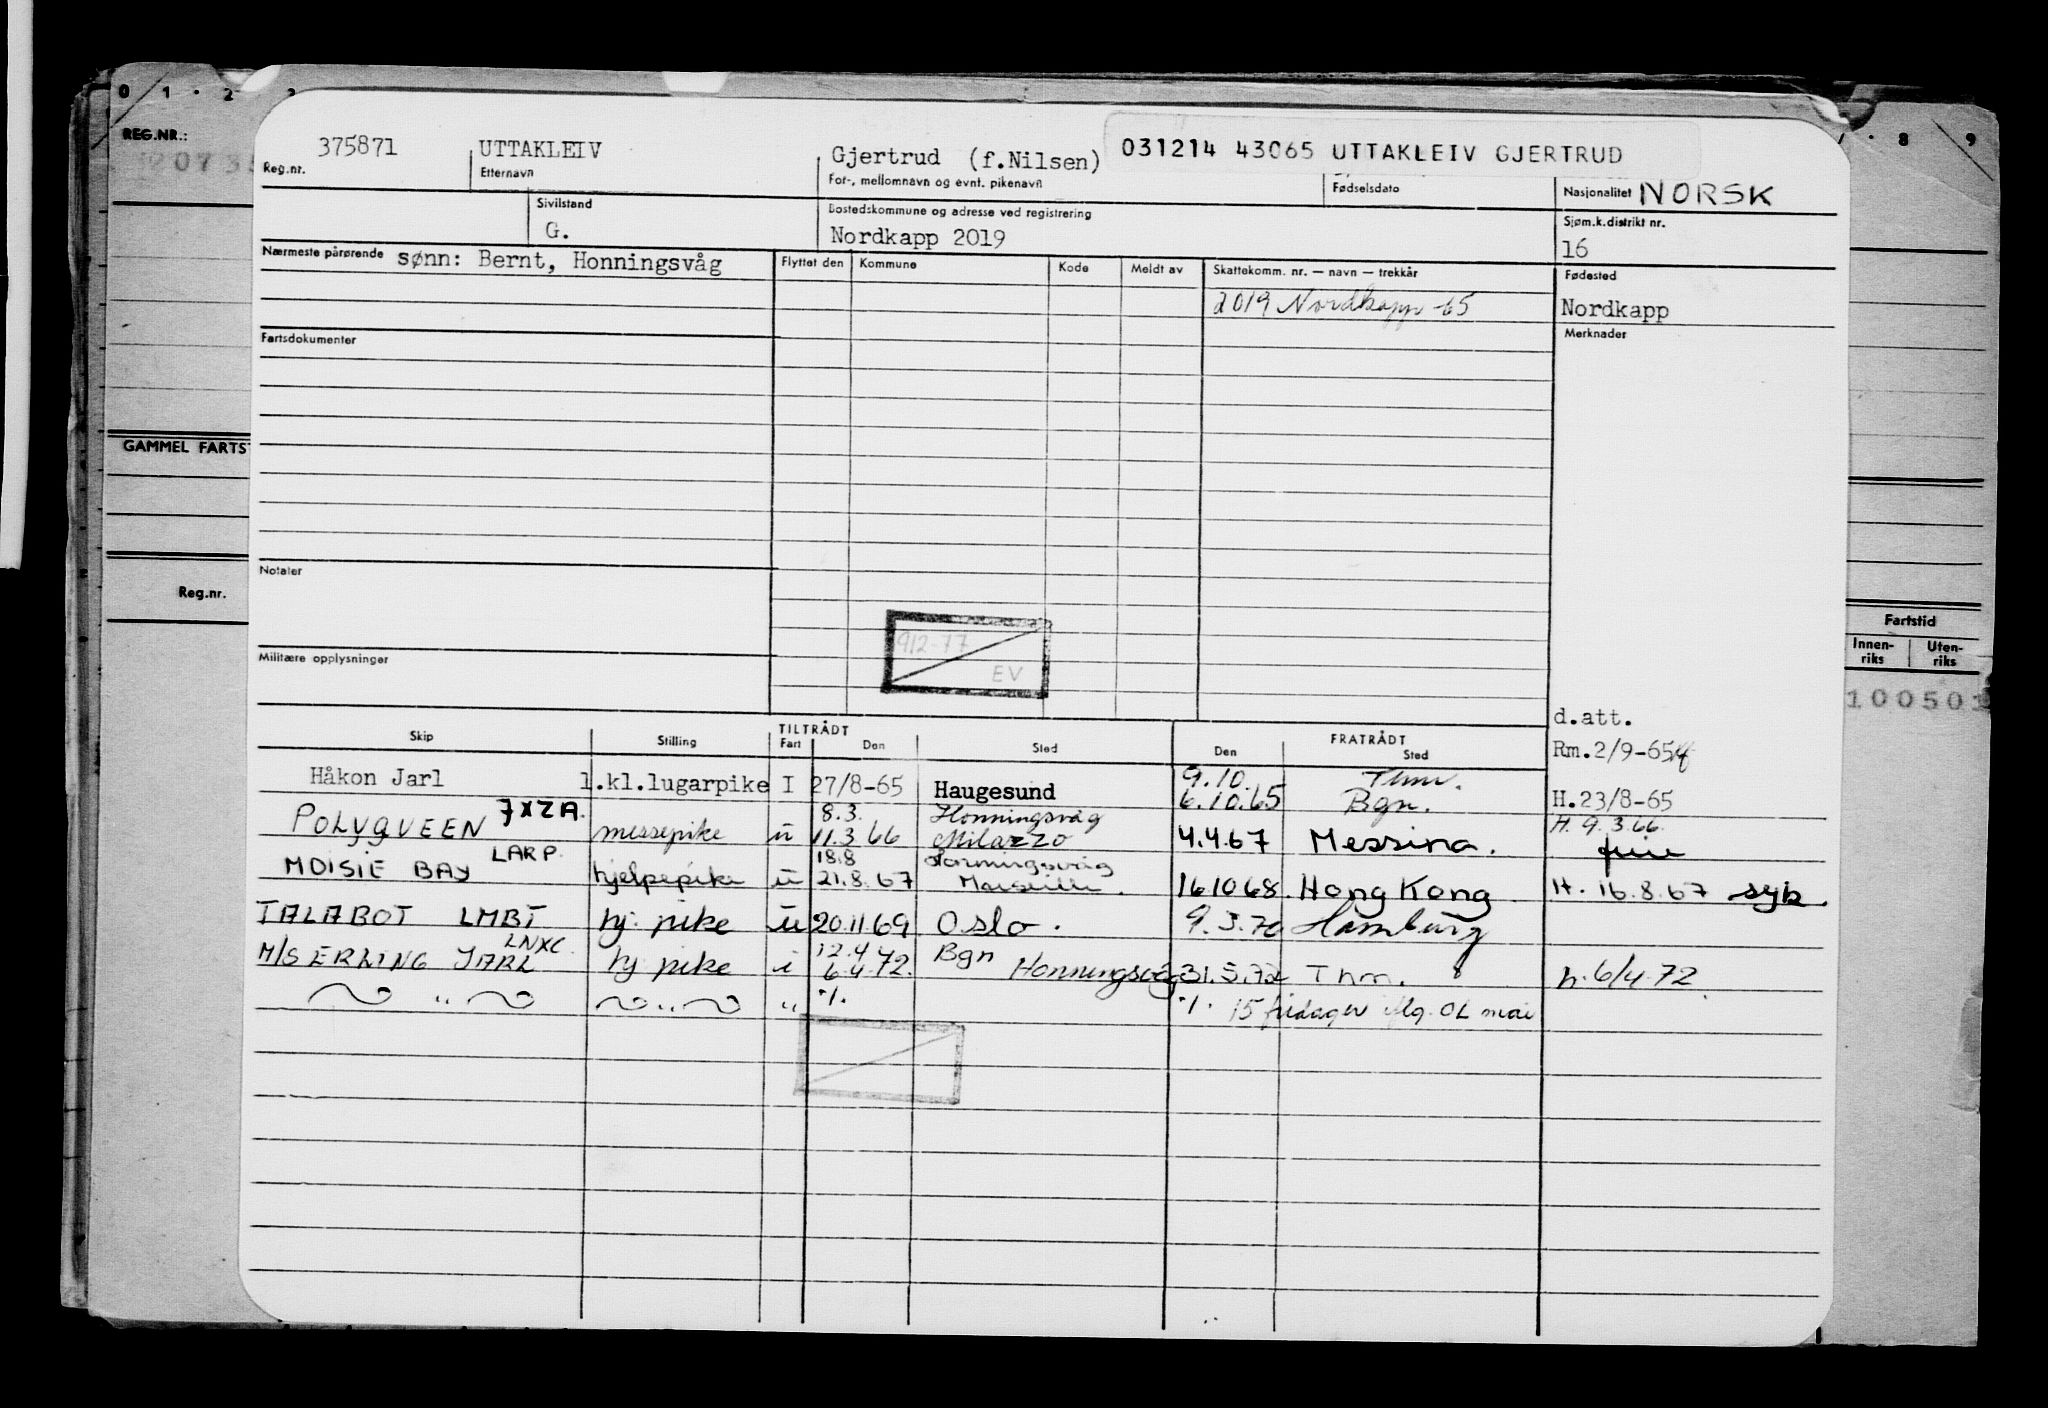 0 1 · 2 3
· 8 9
REG.NR.:
GAMMEL FARTS
Reg.nr.
Fartstid
Innen-riks Uten-riks
100501
375871 UTTAKLEIV Gjertrud (f.Nilsen) 031214 43065 UTTAKLEIV GJERTRUD
Reg.nr. Etternavn For-, mellomnavn og evnt. pikenavn Fødselsdato Nasjonalitet NORSK
Sivilstand Bostedskommune og adresse ved registrering Sjøm.k.distrikt nr.
G. Nordkapp 2019 16
Nærmeste pårørende sønn: Bernt, Honningsvåg Flyttet den Kommune Kode Meldt av Skattekomm. nr. — navn — trekkår Fødested
2019 Nordkapp -65 Nordkapp
Fartsdokumenter Merknader
Notater
912-77
EV
Militære opplysninger
d.att.
Skip Stilling TILTRÅDT Fart Den Sted FRATRÅDT Den Sted
Rm.2/9-65
Håkon Jarl 1.kl.lugarpike I 27/8-65 Haugesund 9.10. Thm.
6.10.65 Bgn. H.23/8-65
POLYQUEEN JXZA. messepike u 8.3. Honningsvåg
11.3.66 Milazzo 4.4.67 Messina. H. 9.3.66.
MOISIE BAY LARP. hjelpepike u 18.8 Honningsvåg
21.8.67 Marseille. 16.10.68 Hong Kong H. 16.8.67 syk.
TALABOT LMBT hj. pike u 20.11.69 Oslo. 9.3.70 Hamburg
M/S ERLING JARL LNXC hj pike i 12.4 Bgn
6.4.72. Honningsvåg 31.5.72 Thm. h. 6/4.72
" " " ./. ./. 15 fridager iflg. OL mai